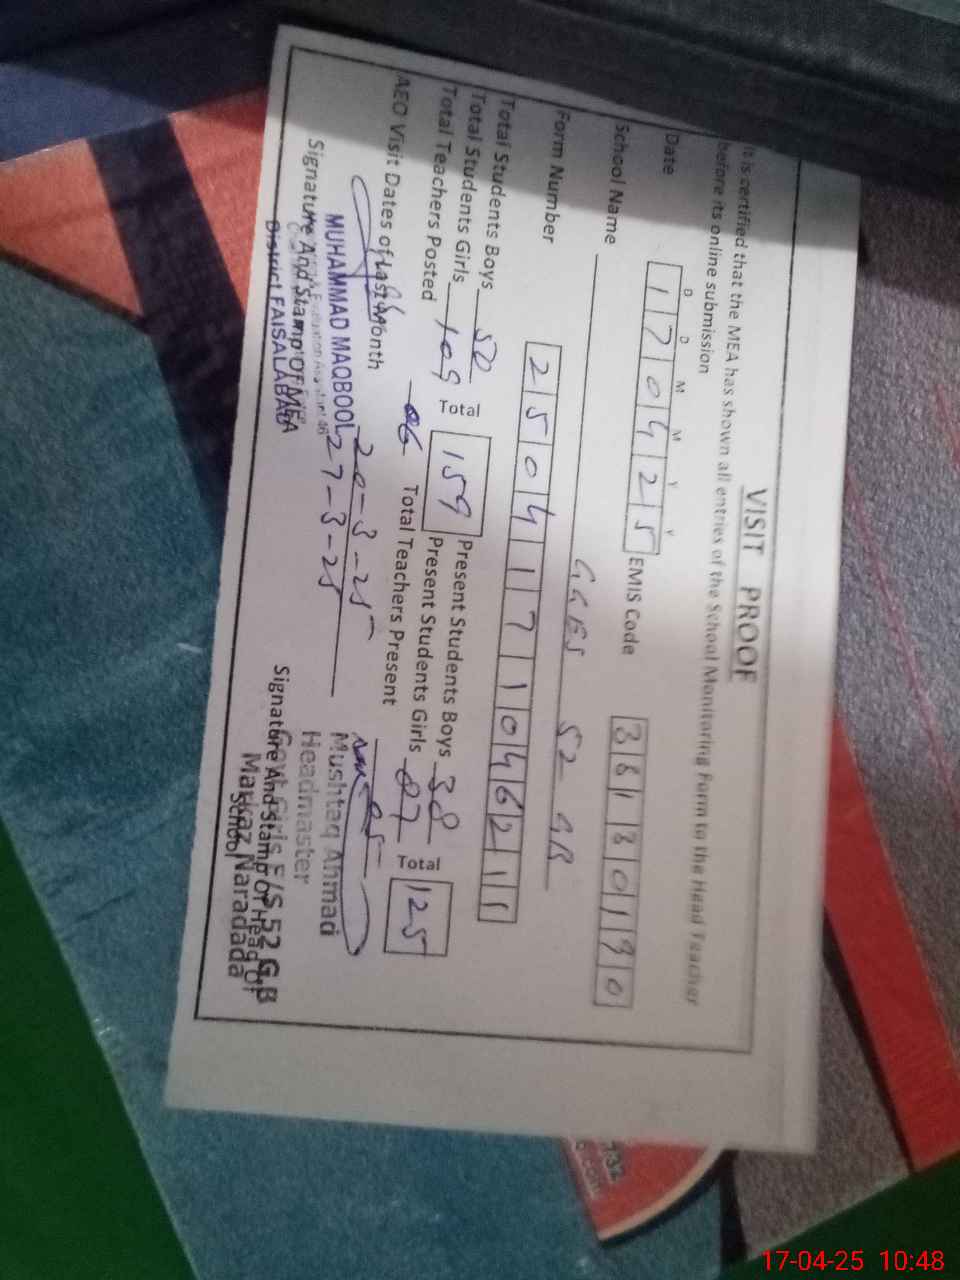 VISIT PROOF
It is certified that the MEA has shown all entries of the School Monitoring Form to the Head Teacher
before its online submission
D D M M Y Y
Date 170425 EMIS Code
School Name GGES 52 GB
Form Number 25041711046211
Total Students Boys 50 Present Students Boys 38
Total Students Girls 109 Total 159 Present Students Girls 87 Total 125
Total Teachers Posted 06 Total Teachers Present 05
AEO Visit Dates of Last Month 20-3-25
27-3-25
MUHAMMAD MAQBOOL
Signature And Stamp Of MEA
District FAISALABAD
Mushtaq Ahmad
Headmaster
Govt Girls E/S 52 G.B
Signature And Stamp Of Head Of
School
Markaz Naradada
17-04-25 10:48